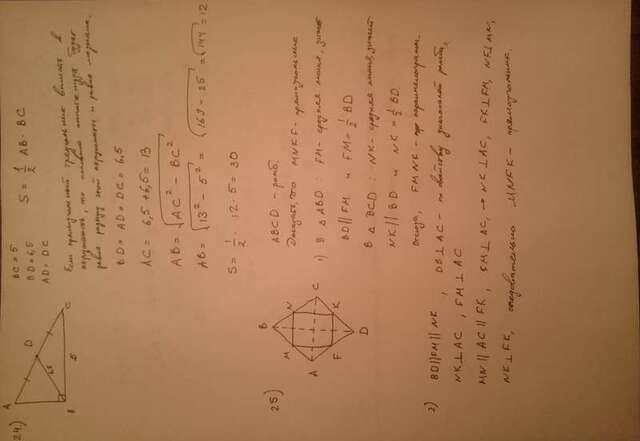 24)
A
D
6,5
B
5
C
BC = 5
BD = 6,5
AD = DC
S = 1/2 AB · BC
Если прямоугольный треугольник вписать в
окружность, то половина гипотенузы будет
равна радиусу этой окружности и равна медиане.
BD = AD = DC = 6,5
AC = 6,5 + 6,5 = 13
AB = √(AC² - BC²)
AB = √(13² - 5²) = √(169 - 25) = √144 = 12
S = 1/2 · 12 · 5 = 30
25)
B
M
N
A
C
F
K
D
ABCD - ромб.
Доказать, что MNKF - прямоугольник
1) В △ ABD : FM - средняя линия, значит
BD ∥ FM и FM = 1/2 BD
В △ BCD : NK - средняя линия, значит
NK ∥ BD и NK = 1/2 BD
Отсюда, FMNK - параллелограмм.
2) BD ∥ FM ∥ NK , DB ⊥ AC - по свойству диагоналей ромба,
NK ⊥ AC , FM ⊥ AC
MN ∥ AC ∥ FK , FM ⊥ AC, → NK ⊥ AC, FK ⊥ FM, NK ⊥ MN,
NK ⊥ FK, следовательно MNFK - прямоугольник.